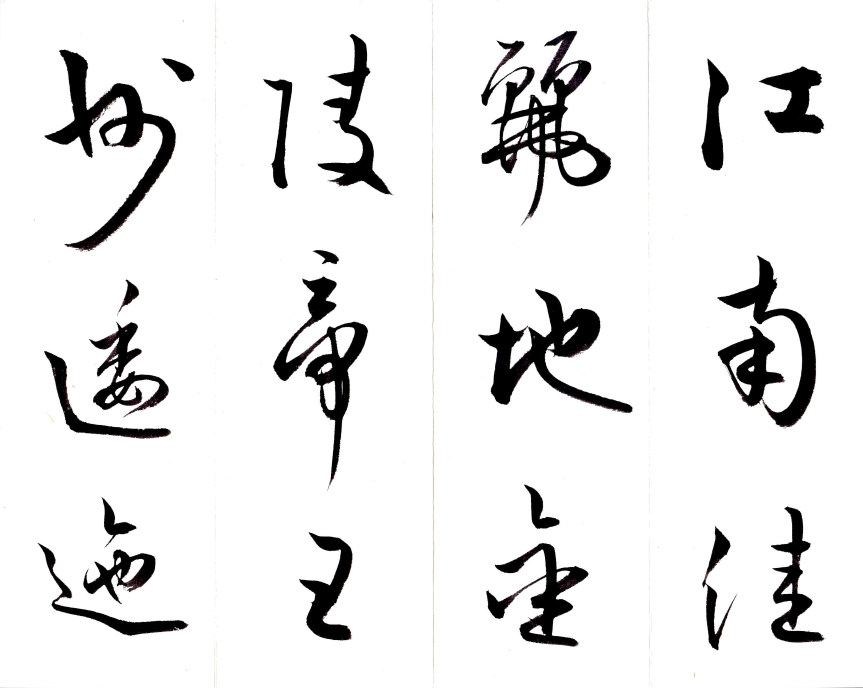 江南佳
麗地金
陵帝王
州逶迤